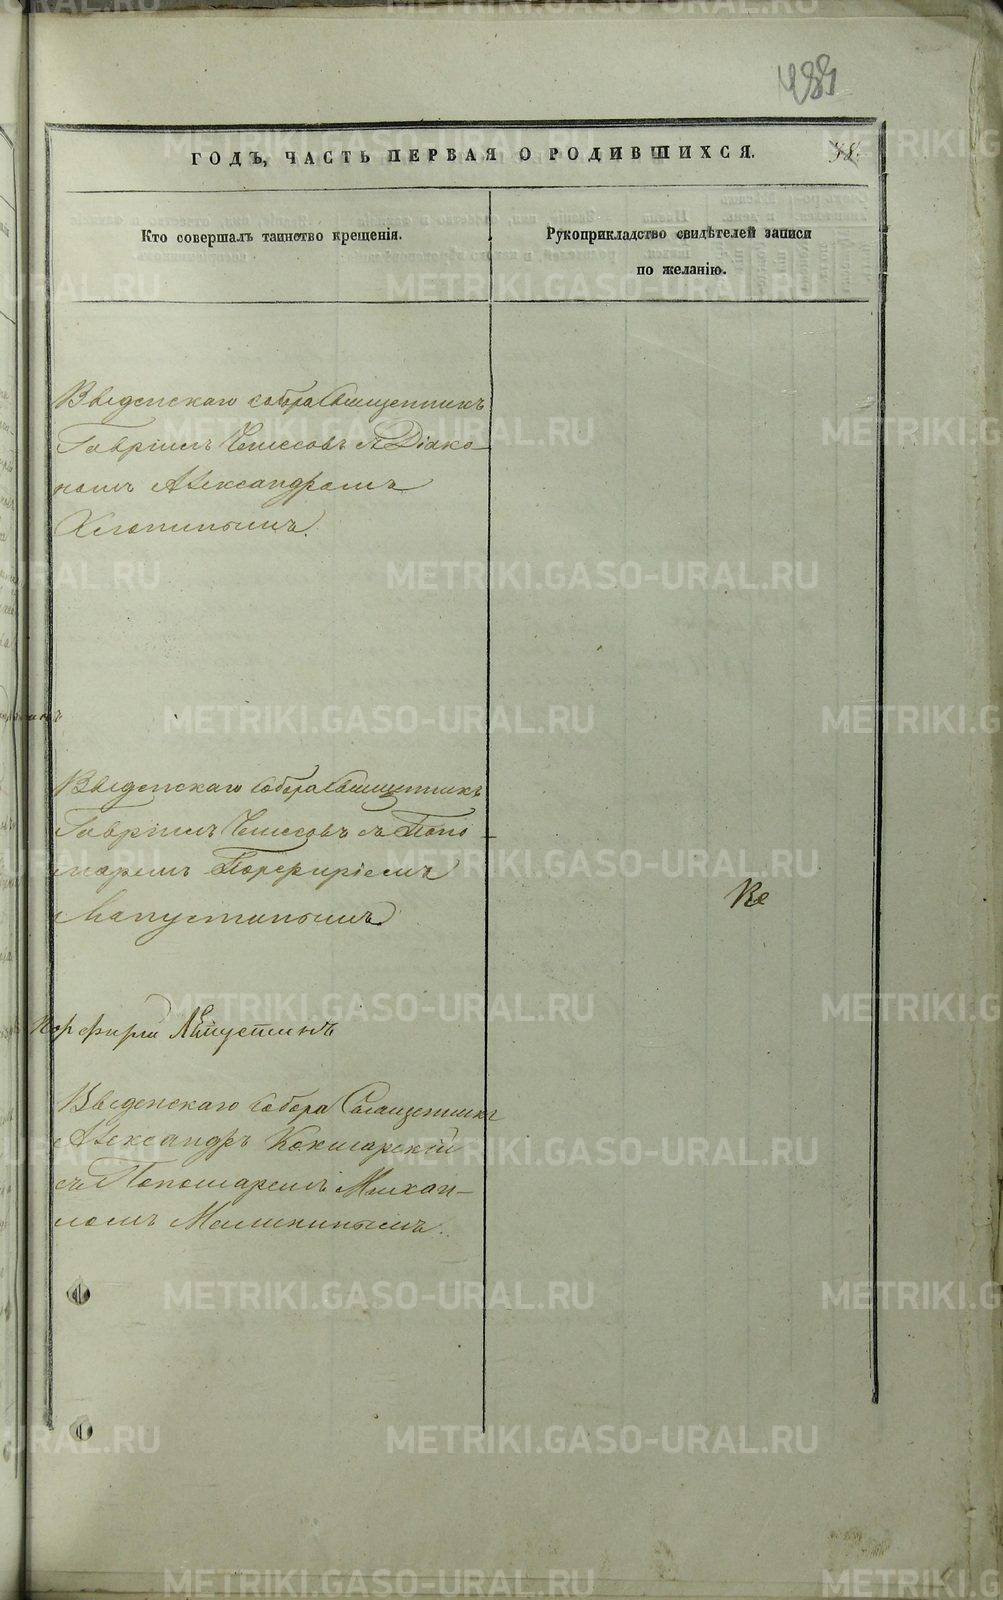 488
ГОДЪ, ЧАСТЬ ПЕРВАЯ О РОДИВШИХСЯ. 48.
Кто совершалъ таинство крещенія.
Рукоприкладство свидѣтелей записи
по желанію.
Введенскаго собора Священникъ
Гавріилъ Чиссовъ съ Діако
номъ Александромъ
Хлопинымъ.
Введенскаго собора Священникъ
Гавріилъ Чиссовъ съ Поно-
маремъ Порфиріемъ
Лапустинымъ
Порфирій Лапустинъ
Введенскаго собора Священникъ
Александръ Кокшарскій
съ Пономаремъ Михаи-
ломъ Малининымъ.
METRIKI.GASO-URAL.RU